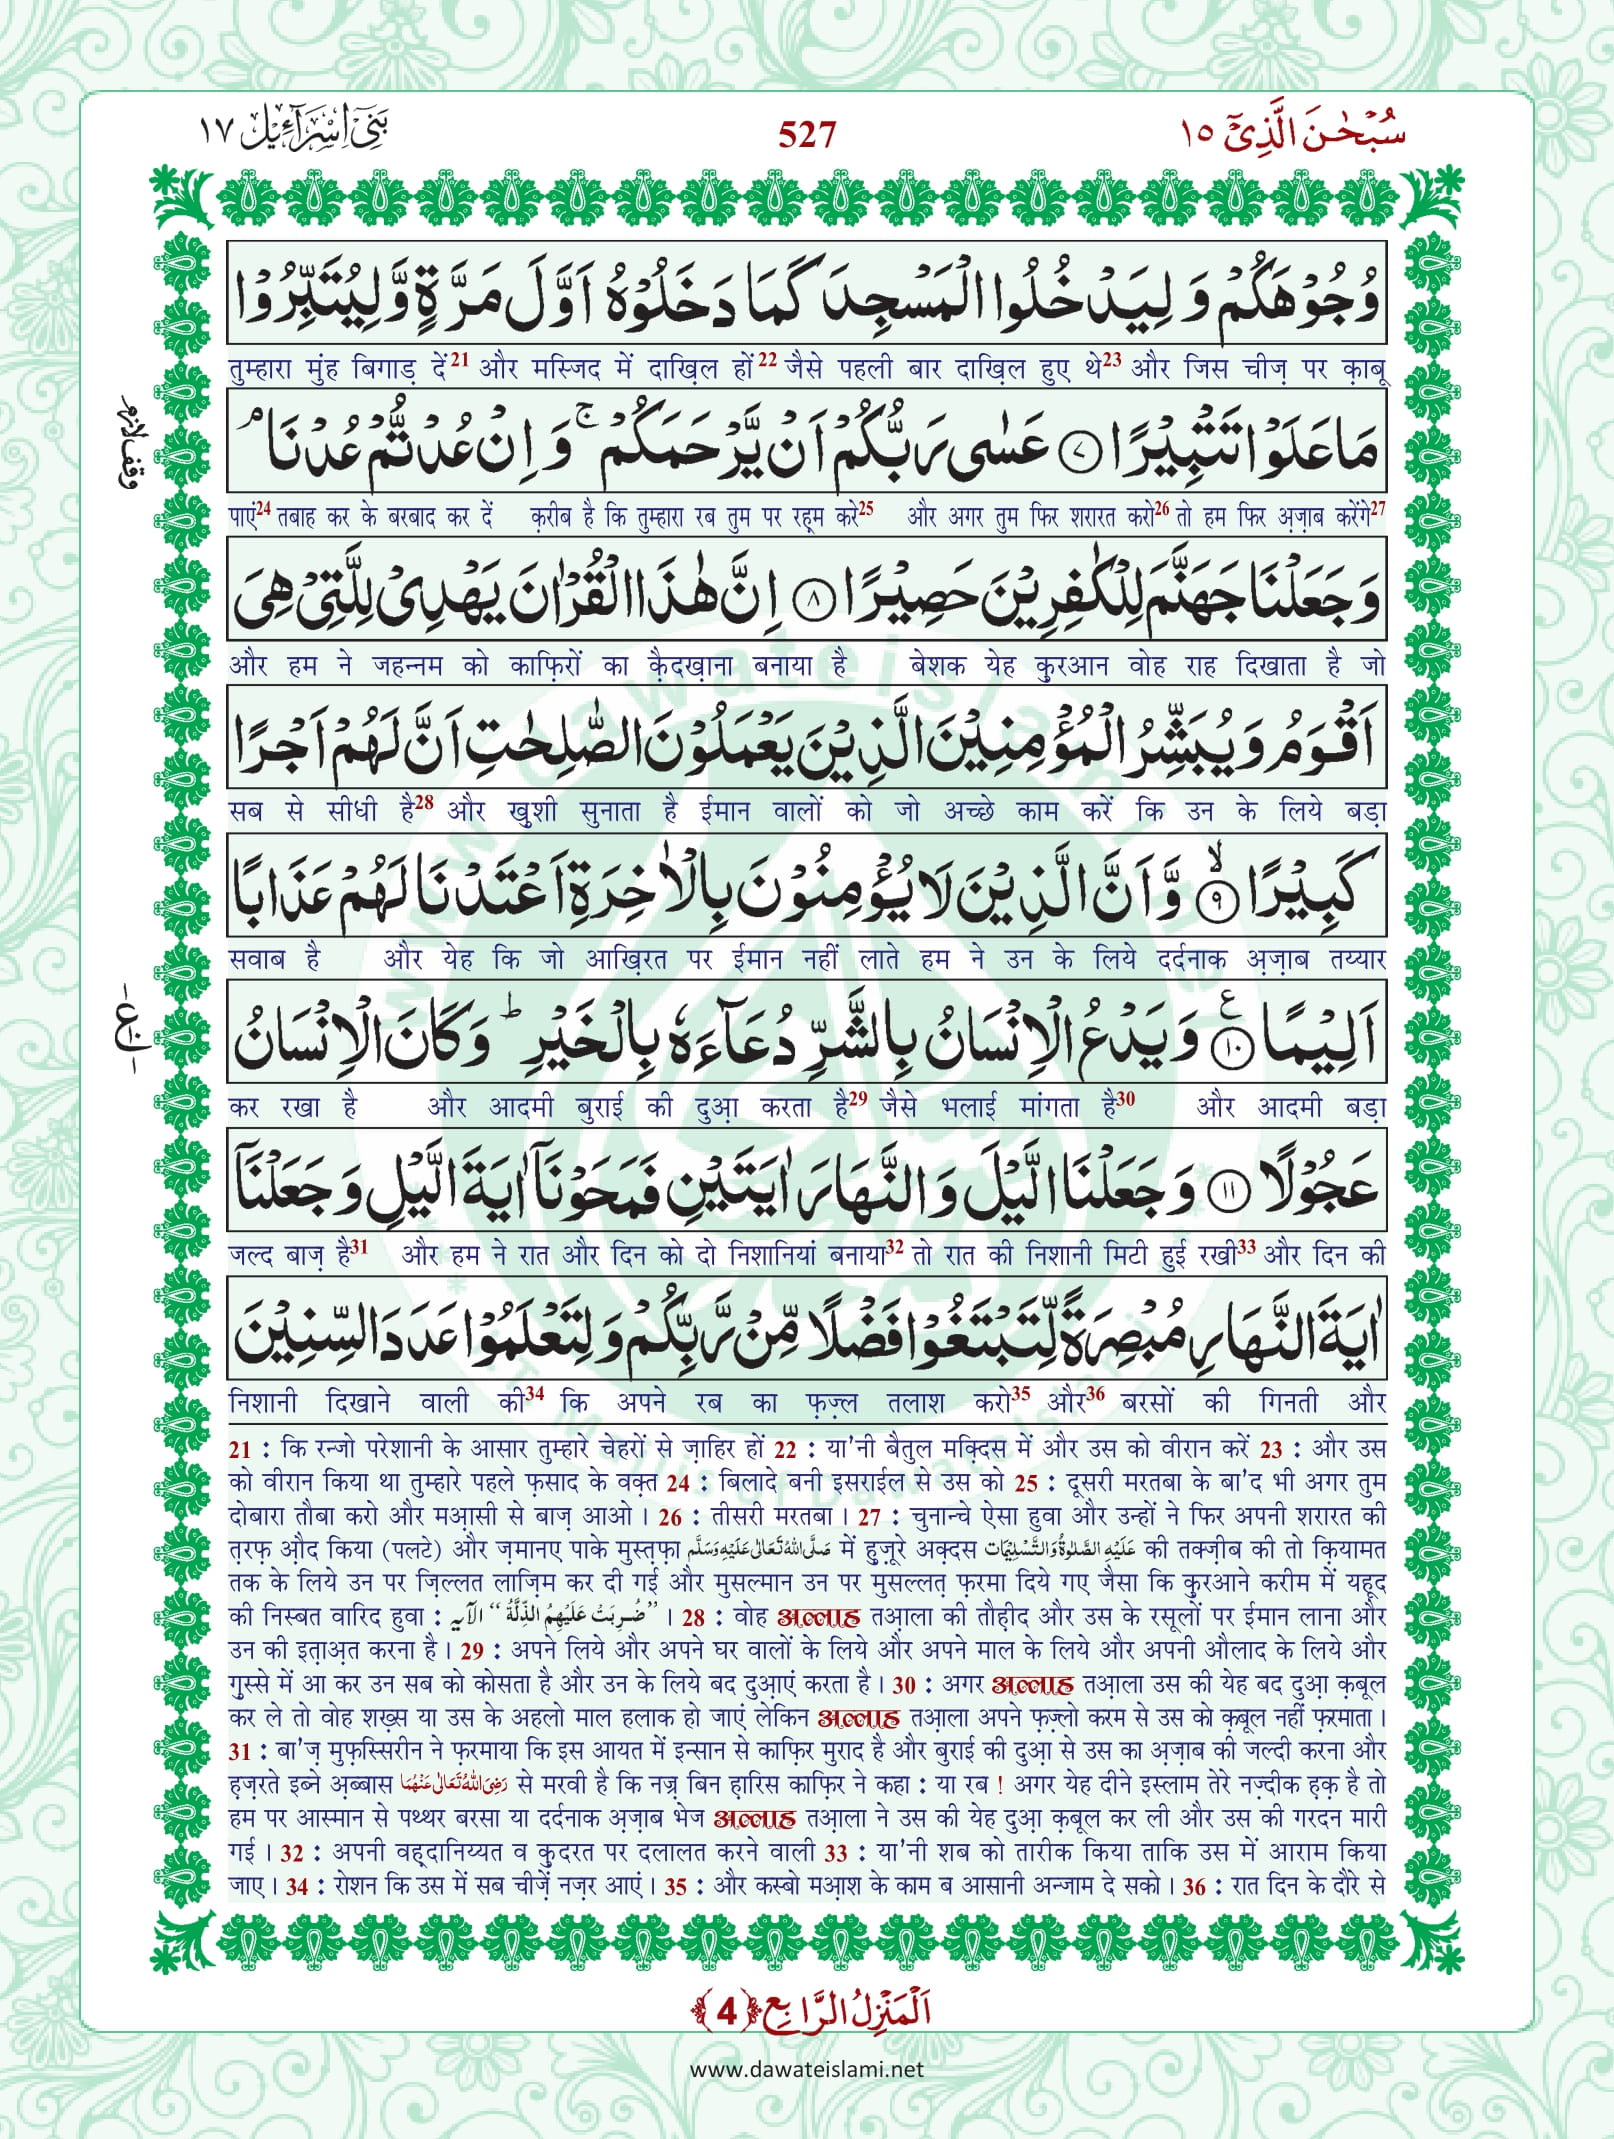 سُبْحٰنَ الَّذِیْۤ ١٥
527
بَنِیْۤ اِسْرَآءِیْل ١٧
وُجُوْهَكُمْ وَ لِیَدْخُلُوا الْمَسْجِدَ كَمَا دَخَلُوْهُ اَوَّلَ مَرَّةٍ وَّ لِیُتَبِّرُوْا
तुम्हारा मुंह बिगाड़ दें21 और मस्जिद में दाख़िल हों22 जैसे पहली बार दाख़िल हुए थे23 और जिस चीज़ पर क़ाबू
مَا عَلَوْا تَتْبِیْرًا ۝٧ عَسٰى رَبُّكُمْ اَنْ یَّرْحَمَكُمْ ۚ وَ اِنْ عُدْتُّمْ عُدْنَا ۘ
وقف لازم
पाएं24 तबाह कर के बरबाद कर दें क़रीब है कि तुम्हारा रब तुम पर रह़्म करे25 और अगर तुम फिर शरारत करो26 तो हम फिर अ़ज़ाब करेंगे27
وَ جَعَلْنَا جَهَنَّمَ لِلْكٰفِرِیْنَ حَصِیْرًا ۝٨ اِنَّ هٰذَا الْقُرْاٰنَ یَهْدِیْ لِلَّتِیْ هِیَ
और हम ने जहन्नम को काफ़िरों का क़ैदख़ाना बनाया है बेशक येह क़ुरआन वोह राह दिखाता है जो
اَقْوَمُ وَ یُبَشِّرُ الْمُؤْمِنِیْنَ الَّذِیْنَ یَعْمَلُوْنَ الصّٰلِحٰتِ اَنَّ لَهُمْ اَجْرًا
सब से सीधी है28 और ख़ुशी सुनाता है ईमान वालों को जो अच्छे काम करें कि उन के लिये बड़ा
كَبِیْرًا ۝٩ۙ وَّ اَنَّ الَّذِیْنَ لَا یُؤْمِنُوْنَ بِالْاٰخِرَةِ اَعْتَدْنَا لَهُمْ عَذَابًا
सवाब है और येह कि जो आख़िरत पर ईमान नहीं लाते हम ने उन के लिये दर्दनाक अ़ज़ाब तय्यार
اَلِیْمًا ۝١٠ع وَ یَدْعُ الْاِنْسَانُ بِالشَّرِّ دُعَآءَهٗ بِالْخَیْرِ ؕ وَ كَانَ الْاِنْسَانُ
कर रखा है और आदमी बुराई की दुआ़ करता है29 जैसे भलाई मांगता है30 और आदमी बड़ा
عَجُوْلًا ۝١١ وَ جَعَلْنَا الَّیْلَ وَ النَّهَارَ اٰیَتَیْنِ فَمَحَوْنَاۤ اٰیَةَ الَّیْلِ وَ جَعَلْنَاۤ
जल्द बाज़ है31 और हम ने रात और दिन को दो निशानियां बनाया32 तो रात की निशानी मिटी हुई रखी33 और दिन की
اٰیَةَ النَّهَارِ مُبْصِرَةً لِّتَبْتَغُوْا فَضْلًا مِّنْ رَّبِّكُمْ وَ لِتَعْلَمُوْا عَدَدَ السِّنِیْنَ
निशानी दिखाने वाली की34 कि अपने रब का फ़ज़्ल तलाश करो35 और36 बरसों की गिनती और
21 : कि रन्जो परेशानी के आसार तुम्हारे चेहरों से ज़ाहिर हों 22 : या'नी बैतुल मक़्दिस में और उस को वीरान करें 23 : और उस
को वीरान किया था तुम्हारे पहले फ़साद के वक़्त 24 : बिलादे बनी इसराईल से उस को 25 : दूसरी मरतबा के बा'द भी अगर तुम
दोबारा तौबा करो और मआ़सी से बाज़ आओ । 26 : तीसरी मरतबा । 27 : चुनान्चे ऐसा हुवा और उन्हों ने फिर अपनी शरारत की
त़रफ़ औ़द किया (पलटे) और ज़मानए पाके मुस्त़फ़ा صَلَّى اللهُ تَعَالٰى عَلَيْهِ وَسَلَّم में हुज़ूरे अक़्दस عَلَيْهِ الصَّلٰوةُ وَالتَّسْلِيْمَات की तक्ज़ीब की तो क़ियामत
तक के लिये उन पर ज़िल्लत लाज़िम कर दी गई और मुसल्मान उन पर मुसल्लत़ फ़रमा दिये गए जैसा कि क़ुरआने करीम में यहूद
की निस्बत वारिद हुवा : ”ضُرِبَتْ عَلَيْهِمُ الذِّلَّةُ“ الآیہ । 28 : वोह अल्लाह तआ़ला की तौह़ीद और उस के रसूलों पर ईमान लाना और
उन की इत़ाअ़त करना है । 29 : अपने लिये और अपने घर वालों के लिये और अपने माल के लिये और अपनी औलाद के लिये और
ग़ुस्से में आ कर उन सब को कोसता है और उन के लिये बद दुआ़एं करता है । 30 : अगर अल्लाह तआ़ला उस की येह बद दुआ़ क़बूल
कर ले तो वोह शख़्स या उस के अहलो माल हलाक हो जाएं लेकिन अल्लाह तआ़ला अपने फ़ज़्लो करम से उस को क़बूल नहीं फ़रमाता ।
31 : बा'ज़ मुफ़स्सिरीन ने फ़रमाया कि इस आयत में इन्सान से काफ़िर मुराद है और बुराई की दुआ़ से उस का अ़ज़ाब की जल्दी करना और
ह़ज़रते इब्ने अ़ब्बास رَضِىَ اللهُ تَعَالٰى عَنْهُمَا से मरवी है कि नज़्र बिन ह़ारिस काफ़िर ने कहा : या रब ! अगर येह दीने इस्लाम तेरे नज़्दीक ह़क़ है तो
हम पर आस्मान से पथ्थर बरसा या दर्दनाक अ़ज़ाब भेज अल्लाह तआ़ला ने उस की येह दुआ़ क़बूल कर ली और उस की गरदन मारी
गई । 32 : अपनी वह़्दानिय्यत व क़ुदरत पर दलालत करने वाली 33 : या'नी शब को तारीक किया ताकि उस में आराम किया
जाए । 34 : रोशन कि उस में सब चीज़ें नज़र आएं । 35 : और कस्बो मआ़श के काम ब आसानी अन्जाम दे सको । 36 : रात दिन के दौरे से
اَلْمَنْزِلُ الرَّابِع ﴿4﴾
www.dawateislami.net